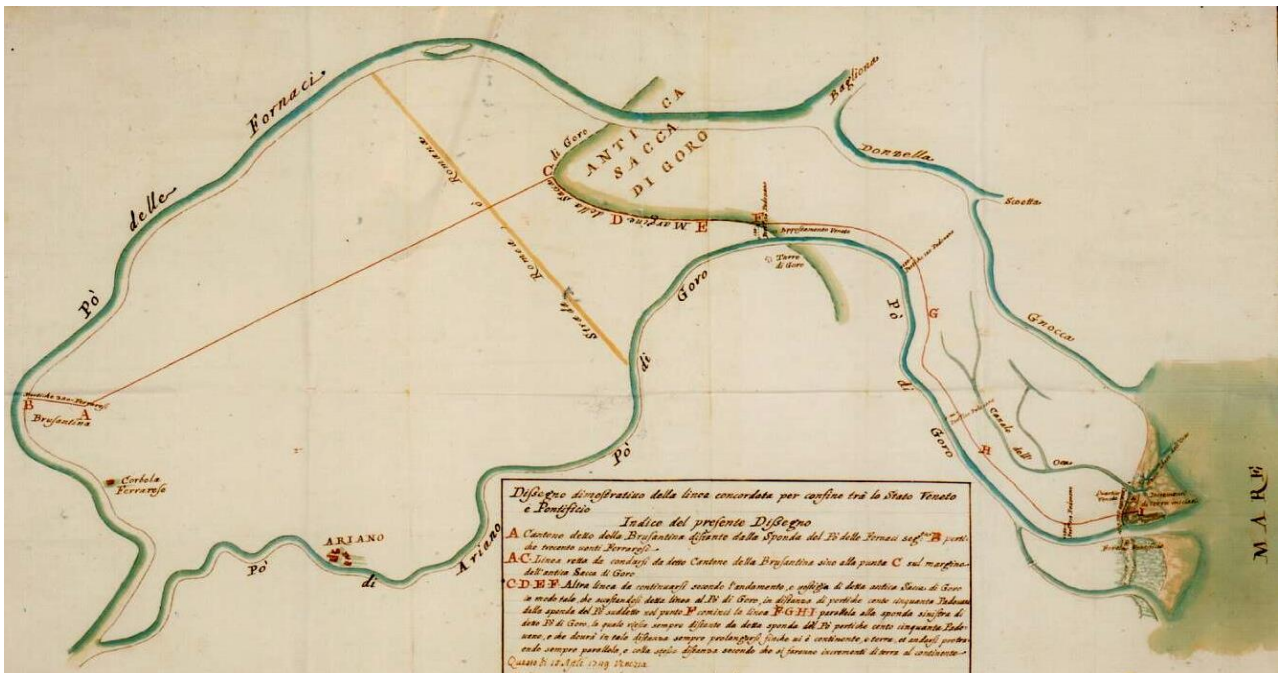 Pò
delle
Fornaci
Bagliona
Donzella
Scoetta
Gnocca
MARE
ANTICA
SACCA
DI GORO
C
Margine della Sacca di Goro
D
E
F
Appostamento Veneto
Torre
di Goro
Strada Romea, ò Romana
Pò
di
Goro
G
H
I
Canale dell'
B
A
Brusantina
Corbola
Ferrarese
ARIANO
Pò
di
Ariano
Pò
di
Goro
Dissegno dimostrativo della linea concordata per confine trà lo Stato Veneto
e Pontificio
Indice del presente Dissegno
A Cantone detto della Brusantina distante dalla Sponda del Pò delle Fornaci B perti-
che trecento venti Ferraresi
A C Linea retta da condursi da detto Cantone della Brusantina sino alla punta C sul margine
dell'antica Sacca di Goro
C D E F Altra linea da continuarsi secondo l'andamento, e vestigia di detta antica Sacca di Goro
in modo tale, che accostandosi detta linea al Pò di Goro, in distanza di pertiche cento cinquanta Padovane
dalla sponda del Pò suddetto nel punto F cominci la linea F G H I parallela alla sponda sinistra di
detto Pò di Goro, la quale resta sempre distante da detta sponda del Pò pertiche cento cinquanta Pado-
vane, e che dovrà in tale distanza sempre prolongarsi finche vi è continente, e terra, et andarsi protra-
endo sempre parallela, e colla stessa distanza secondo che si faranno incrementi di terra al continente
1749 Venezia